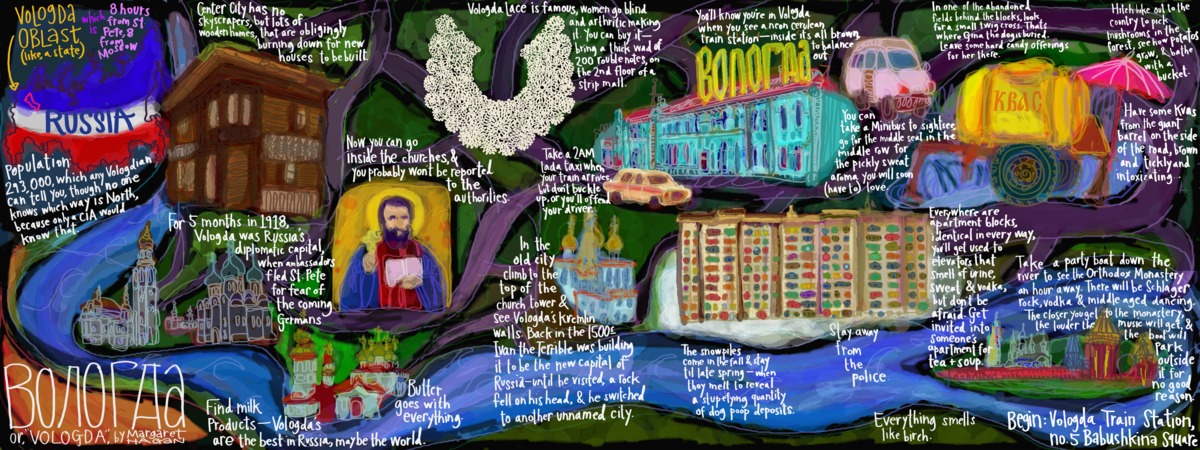 Vologda
Oblast
(like a state)
which is
8 hours
from St
Pete, 8
from
Moscow
RUSSIA
Population
293,000, which any Vologdian
can tell you, though no one
knows which way is North,
because only a CIA would
know that.
Center City has no
skyscrapers, but lots of
wooden homes, that are obligingly
burning down for new
houses to be built.
For 5 months in 1918,
Vologda was Russia's
diplomatic capital,
when ambassadors
fled St. Pete
for fear of
the coming
Germans
ВОЛОГДА
or, "VOLOGDA", by Margaret
Find milk
Products - Vologda's
are the best in Russia, maybe the World.
Butter
goes with
everything.
Now you can go
inside the churches, &
you probably wont be reported
to the
authorities.
Vologda lace is famous, women go blind
and arthritic making
it. You can buy it -
bring a thick wad of
200 rouble notes, on
the 2nd floor of a
strip mall.
Take a 2AM
lada taxi when
your train arrives,
but don't buckle
up, or you'll offend
your driver.
In the
old city
climb to the
top of the
church tower &
see Vologda's Kremlin
walls. Back in the 1500s
Ivan the Terrible was building
it to be the new capital of
Russia - until he visited, a rock
fell on his head, & he switched
to another unnamed city.
You'll know you're in Vologda
when you see a neon cerulean
train station - inside its all brown,
to balance
out
ВОЛОГДА
You can
take a Minibus to sightsee,
go for the middle seat in the
middle row for
the pickly sweat
aroma, you will soon
(have to) love.
In one of the abandoned
fields behind the blocks, look
for a small twig cross. Thats
where Gina the dog is buried.
Leave some hard candy offerings
for her there.
Hitch hike out to the
country to pick
mushrooms in the
forest, see how potatos
grow, & bathe
with a
bucket.
КВАС
Have some Kvas
from the giant
barrel on the side
of the road, brown
and tickly and
intoxicating...
Everywhere are
apartment blocks,
identical in every way,
You'll get used to
elevators that
smell of urine,
sweat & vodka,
but don't be
afraid. Get
invited into
someone's
apartment for
tea + soup.
Stay away
from
the
police
The snowpiles
come in the fall & stay
til late spring - when
they melt to reveal
a stupefying quantity
of dog poop deposits.
Take a party boat down the
river to see the Orthodox Monastery
an hour away. There will be Schlager
rock, vodka & middle aged dancing.
The closer you get to the monastery,
the louder the music will get, &
the boat will
park
outside
it for
no good
reason.
Everything smells
like birch.
Begin: Vologda Train Station,
no. 5 Babushkina Square